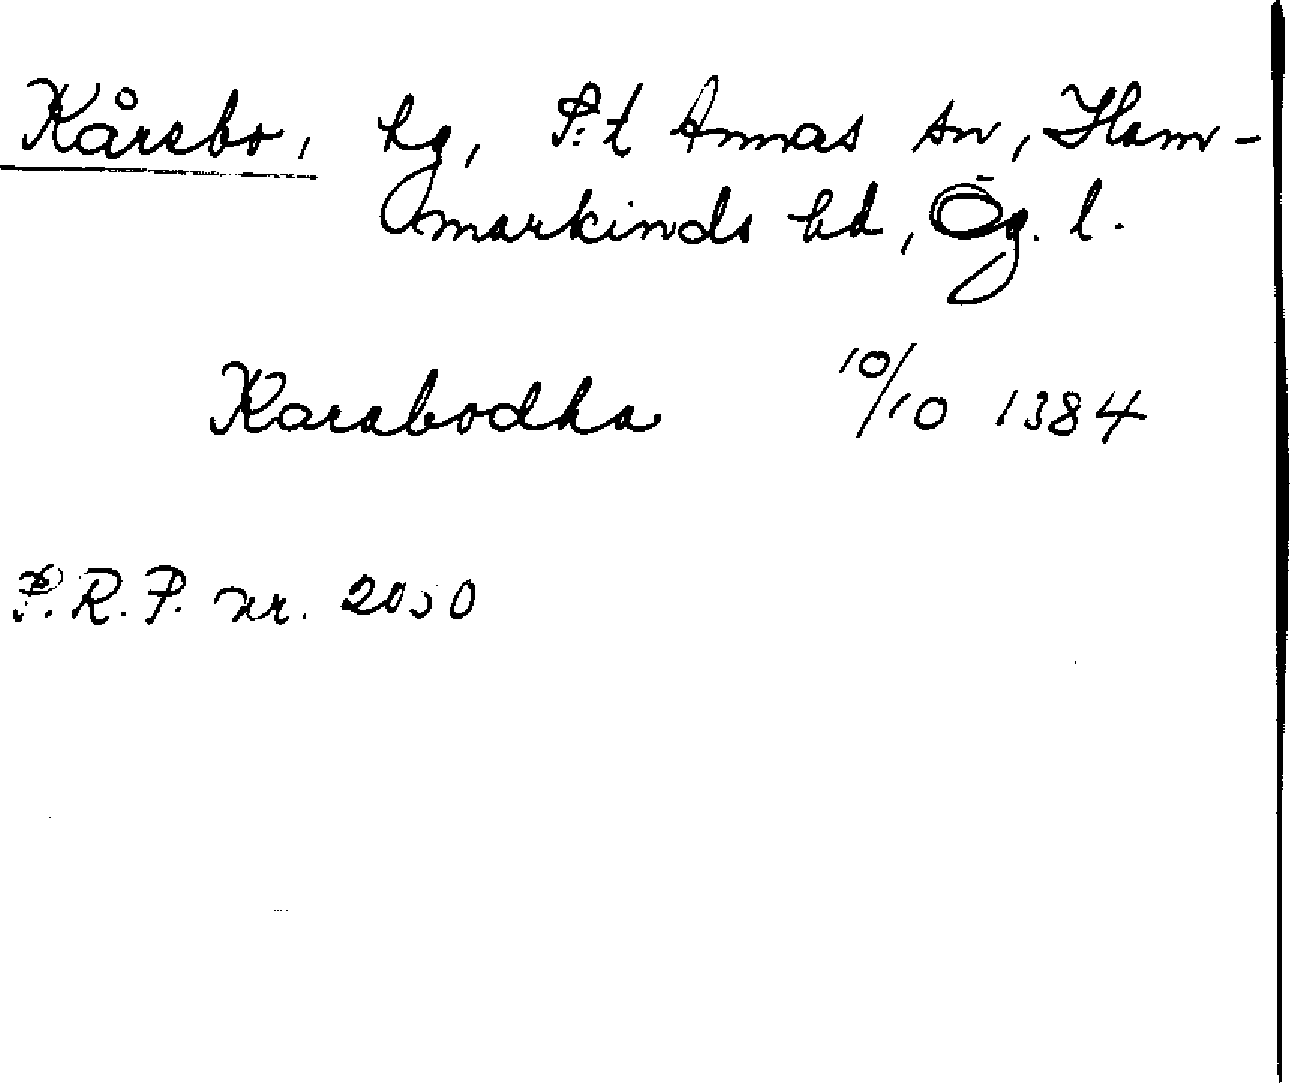 Kårebo, hg, S:t Annas sn, Ham-
markinds hd, Ög. l.
Karabodha 10/10 1384
S.R.P. nr. 2050